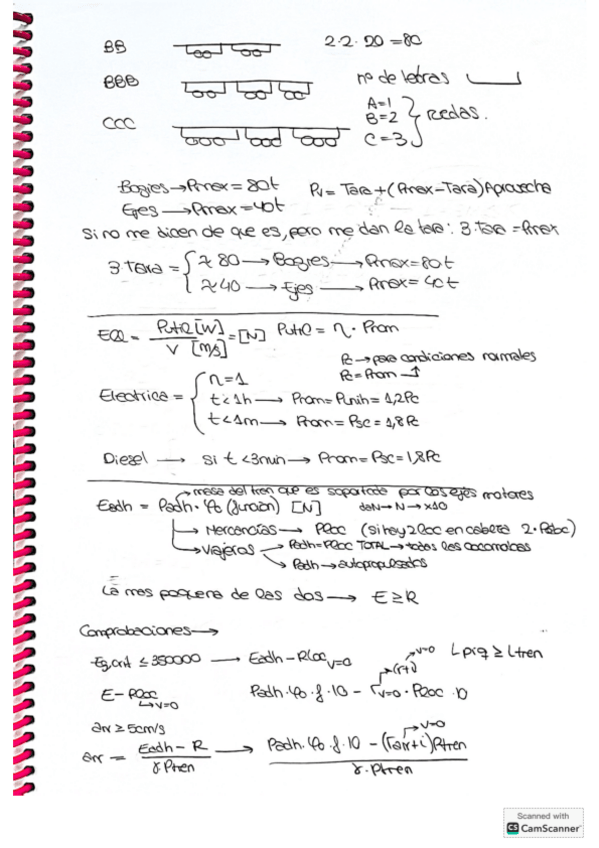 BB 2·2·20=80
BBB nº de letras
CCC A=1 B=2 C=3 } ruedas.
Bogies → Pmax = 80t Pv = Tara + (Pmax - Tara) Aprovecha
Ejes → Pmax = 40t
Si no me dicen de que es, pero me dan la tara: 3·Tara = Pmax
3·Tara = { ≈ 80 → Bogies → Pmax = 80t
≈ 40 → Ejes → Pmax = 40t
EQ = Putil [W] / V [m/s] = [N] Putil = η · Pnom
Pc → para condiciones normales
Pc = Pnom
Electrica = { η = 1
t < 1h → Pnom = Punih = 1,2Pc
t < 1m → Pnom = Psc = 1,8Pc
Diesel → si t < 3min → Pnom = Psc = 1,8Pc
masa del tren que es soportada por los ejes motores
Eadh = Padh · φo (función) [N] daN → N → x10
Mercancías → Ploc (si hay 2 loc en cabeza 2·Ploc)
Viajeros → Padh = Ploc TOTAL → todas las locomotoras
Padh → autopropulsados
La mas pequeña de las dos → E ≥ R
Comprobaciones →
≤ 350000 → Eadh - Rloc v=0 ≥ Ltren
(r+i) v=0
E - Rloc v=0 Padh · φo · f · 10 - r v=0 · Ploc · 10
arr ≥ 5cm/s
v=0
arr = Eadh - R / γ·Ptren → Padh · φo · f · 10 - (rarr+i)Ptren / γ·Ptren
Scanned with
CS CamScanner